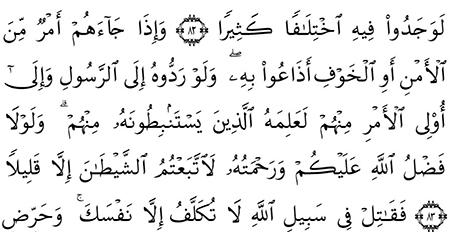 لَوَجَدُوا۟ فِيهِ ٱخْتِلَٰفًا كَثِيرًا ﴿٨٢﴾ وَإِذَا جَآءَهُمْ أَمْرٌ مِّنَ
ٱلْأَمْنِ أَوِ ٱلْخَوْفِ أَذَاعُوا۟ بِهِۦ ۖ وَلَوْ رَدُّوهُ إِلَى ٱلرَّسُولِ وَإِلَىٰٓ
أُو۟لِى ٱلْأَمْرِ مِنْهُمْ لَعَلِمَهُ ٱلَّذِينَ يَسْتَنۢبِطُونَهُۥ مِنْهُمْ ۗ وَلَوْلَا
فَضْلُ ٱللَّهِ عَلَيْكُمْ وَرَحْمَتُهُۥ لَٱتَّبَعْتُمُ ٱلشَّيْطَٰنَ إِلَّا قَلِيلًا
﴿٨٣﴾ فَقَٰتِلْ فِى سَبِيلِ ٱللَّهِ لَا تُكَلَّفُ إِلَّا نَفْسَكَ ۚ وَحَرِّضِ